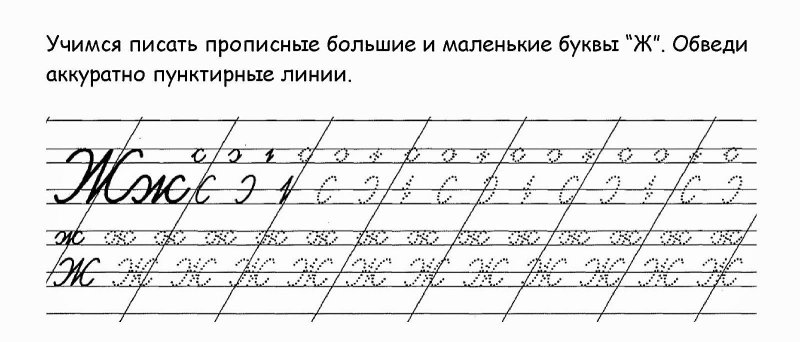 Учимся писать прописные большие и маленькие буквы “Ж”. Обведи
аккуратно пунктирные линии.
Жж
ж ж ж ж ж ж ж ж ж ж ж ж ж ж
Ж Ж Ж Ж Ж Ж Ж Ж Ж Ж Ж Ж